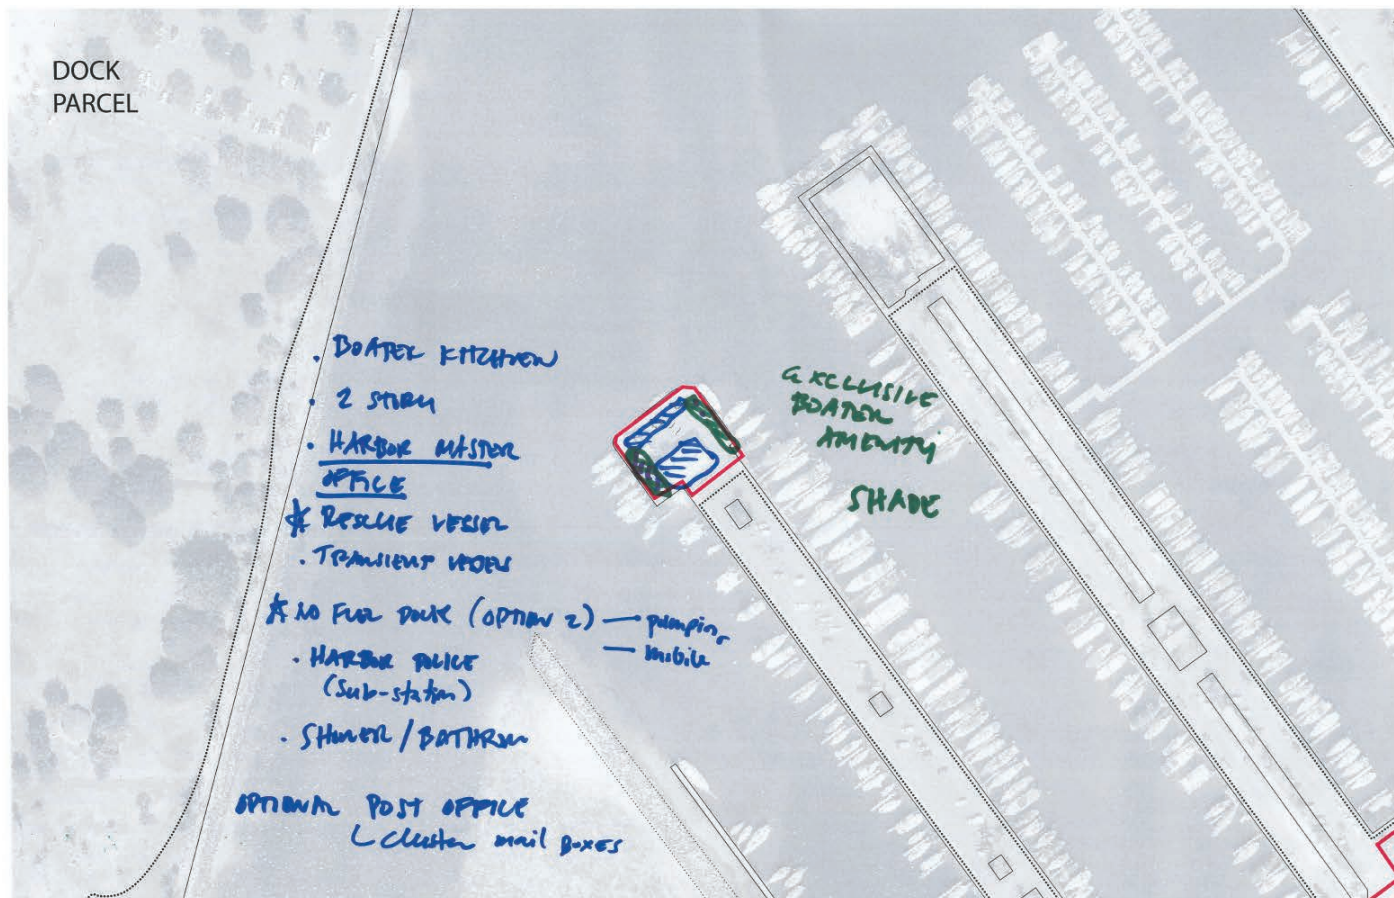 DOCK
PARCEL
. BOATER KITCHEN
. 2 STORY
. HARBOR MASTER
OFFICE
* RESCUE VESSEL
. TRANSIENT VESSELS
* NO FUEL DOCK (OPTION 2) — pumping
— mobile
. HARBOR POLICE
(Sub-station)
. SHOWER / BATHROOM
OPTIONAL POST OFFICE
cluster mail BOXES
EXCLUSIVE
BOATER
AMENITY
SHADE